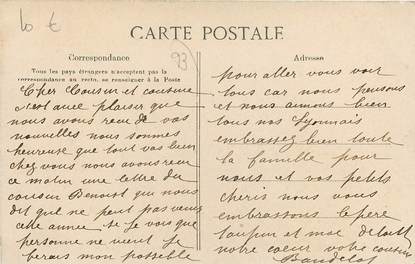 10 €
CARTE POSTALE
93
Correspondance
Tous les pays étrangers n'acceptent pas la
correspondance au recto, se renseigner à la Poste
Cher Cousin et cousine
c'est avec plaisir que
nous avons recu de vos
nouvelles nous sommes
heureuse que tout vas bien
chez vous nous avons recu
ce matin une lettre du
cousin Benoist qui nous
dit que ne peut pas venir
cette annee je vois que
personne ne vient je
ferais mon possible
Adresse
pour aller vous voir
tous car nous pensons
et nous aimons bien
tous nos Lyonnais
embrassez bien toute
la famille pour
nous et vos petits
cheris nous vous
embrassons le père
et moi de tout
notre coeur votre cousine